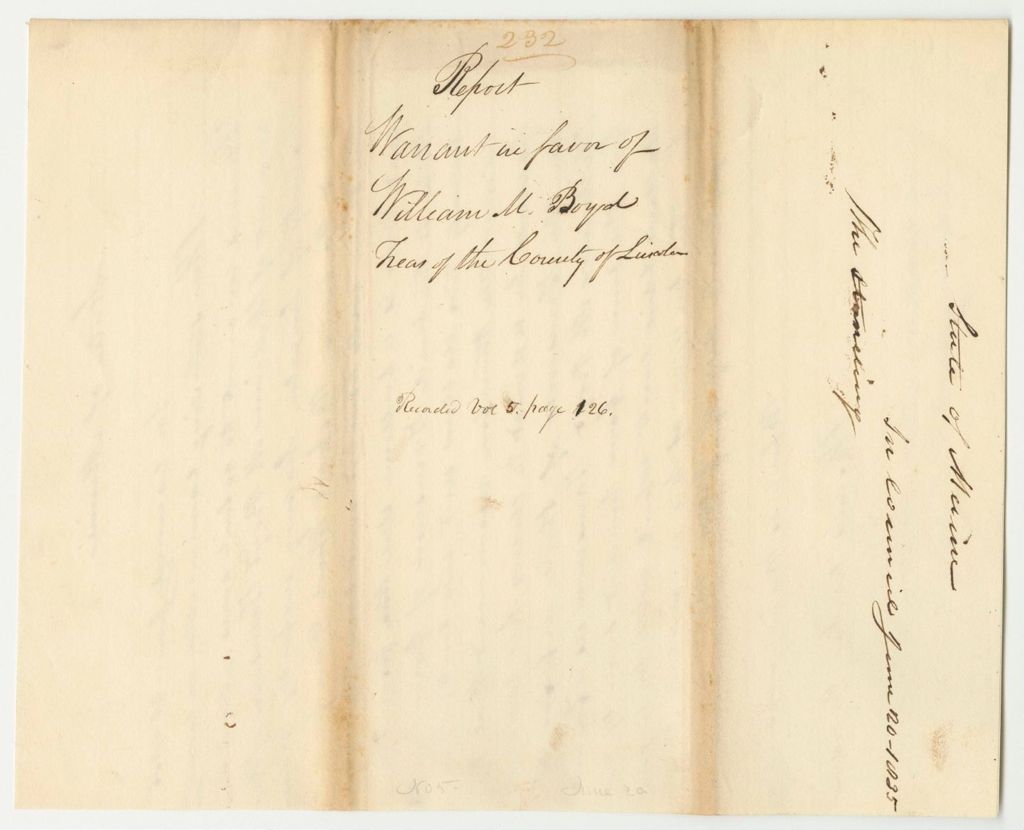 232
Report
Warrant in favor of
William M. Boyd
Treas of the County of Lincoln
Recorded Vol 5. page 126.
No 5. June 20
State of Maine
In Council June 20 1835
The standing